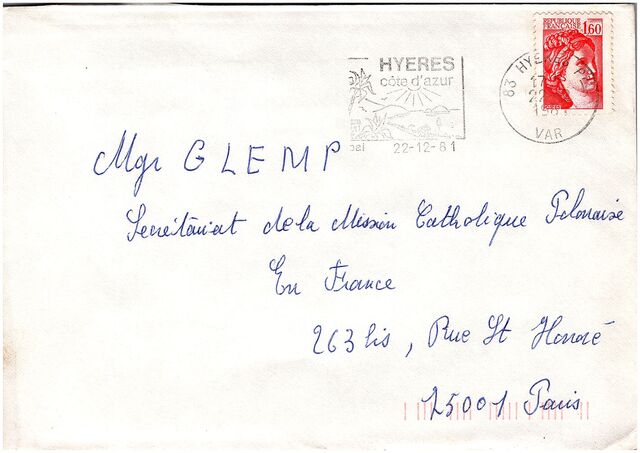 REPUBLIQUE FRANCAISE 1,60
HYERES
côte d'azur
22-12-81
83 HYERES PPAL
17
22
VAR
Mgr GLEMP
Secrétariat de la Mission Catholique Polonaise
En France
263 bis, Rue St Honoré
75001 Paris